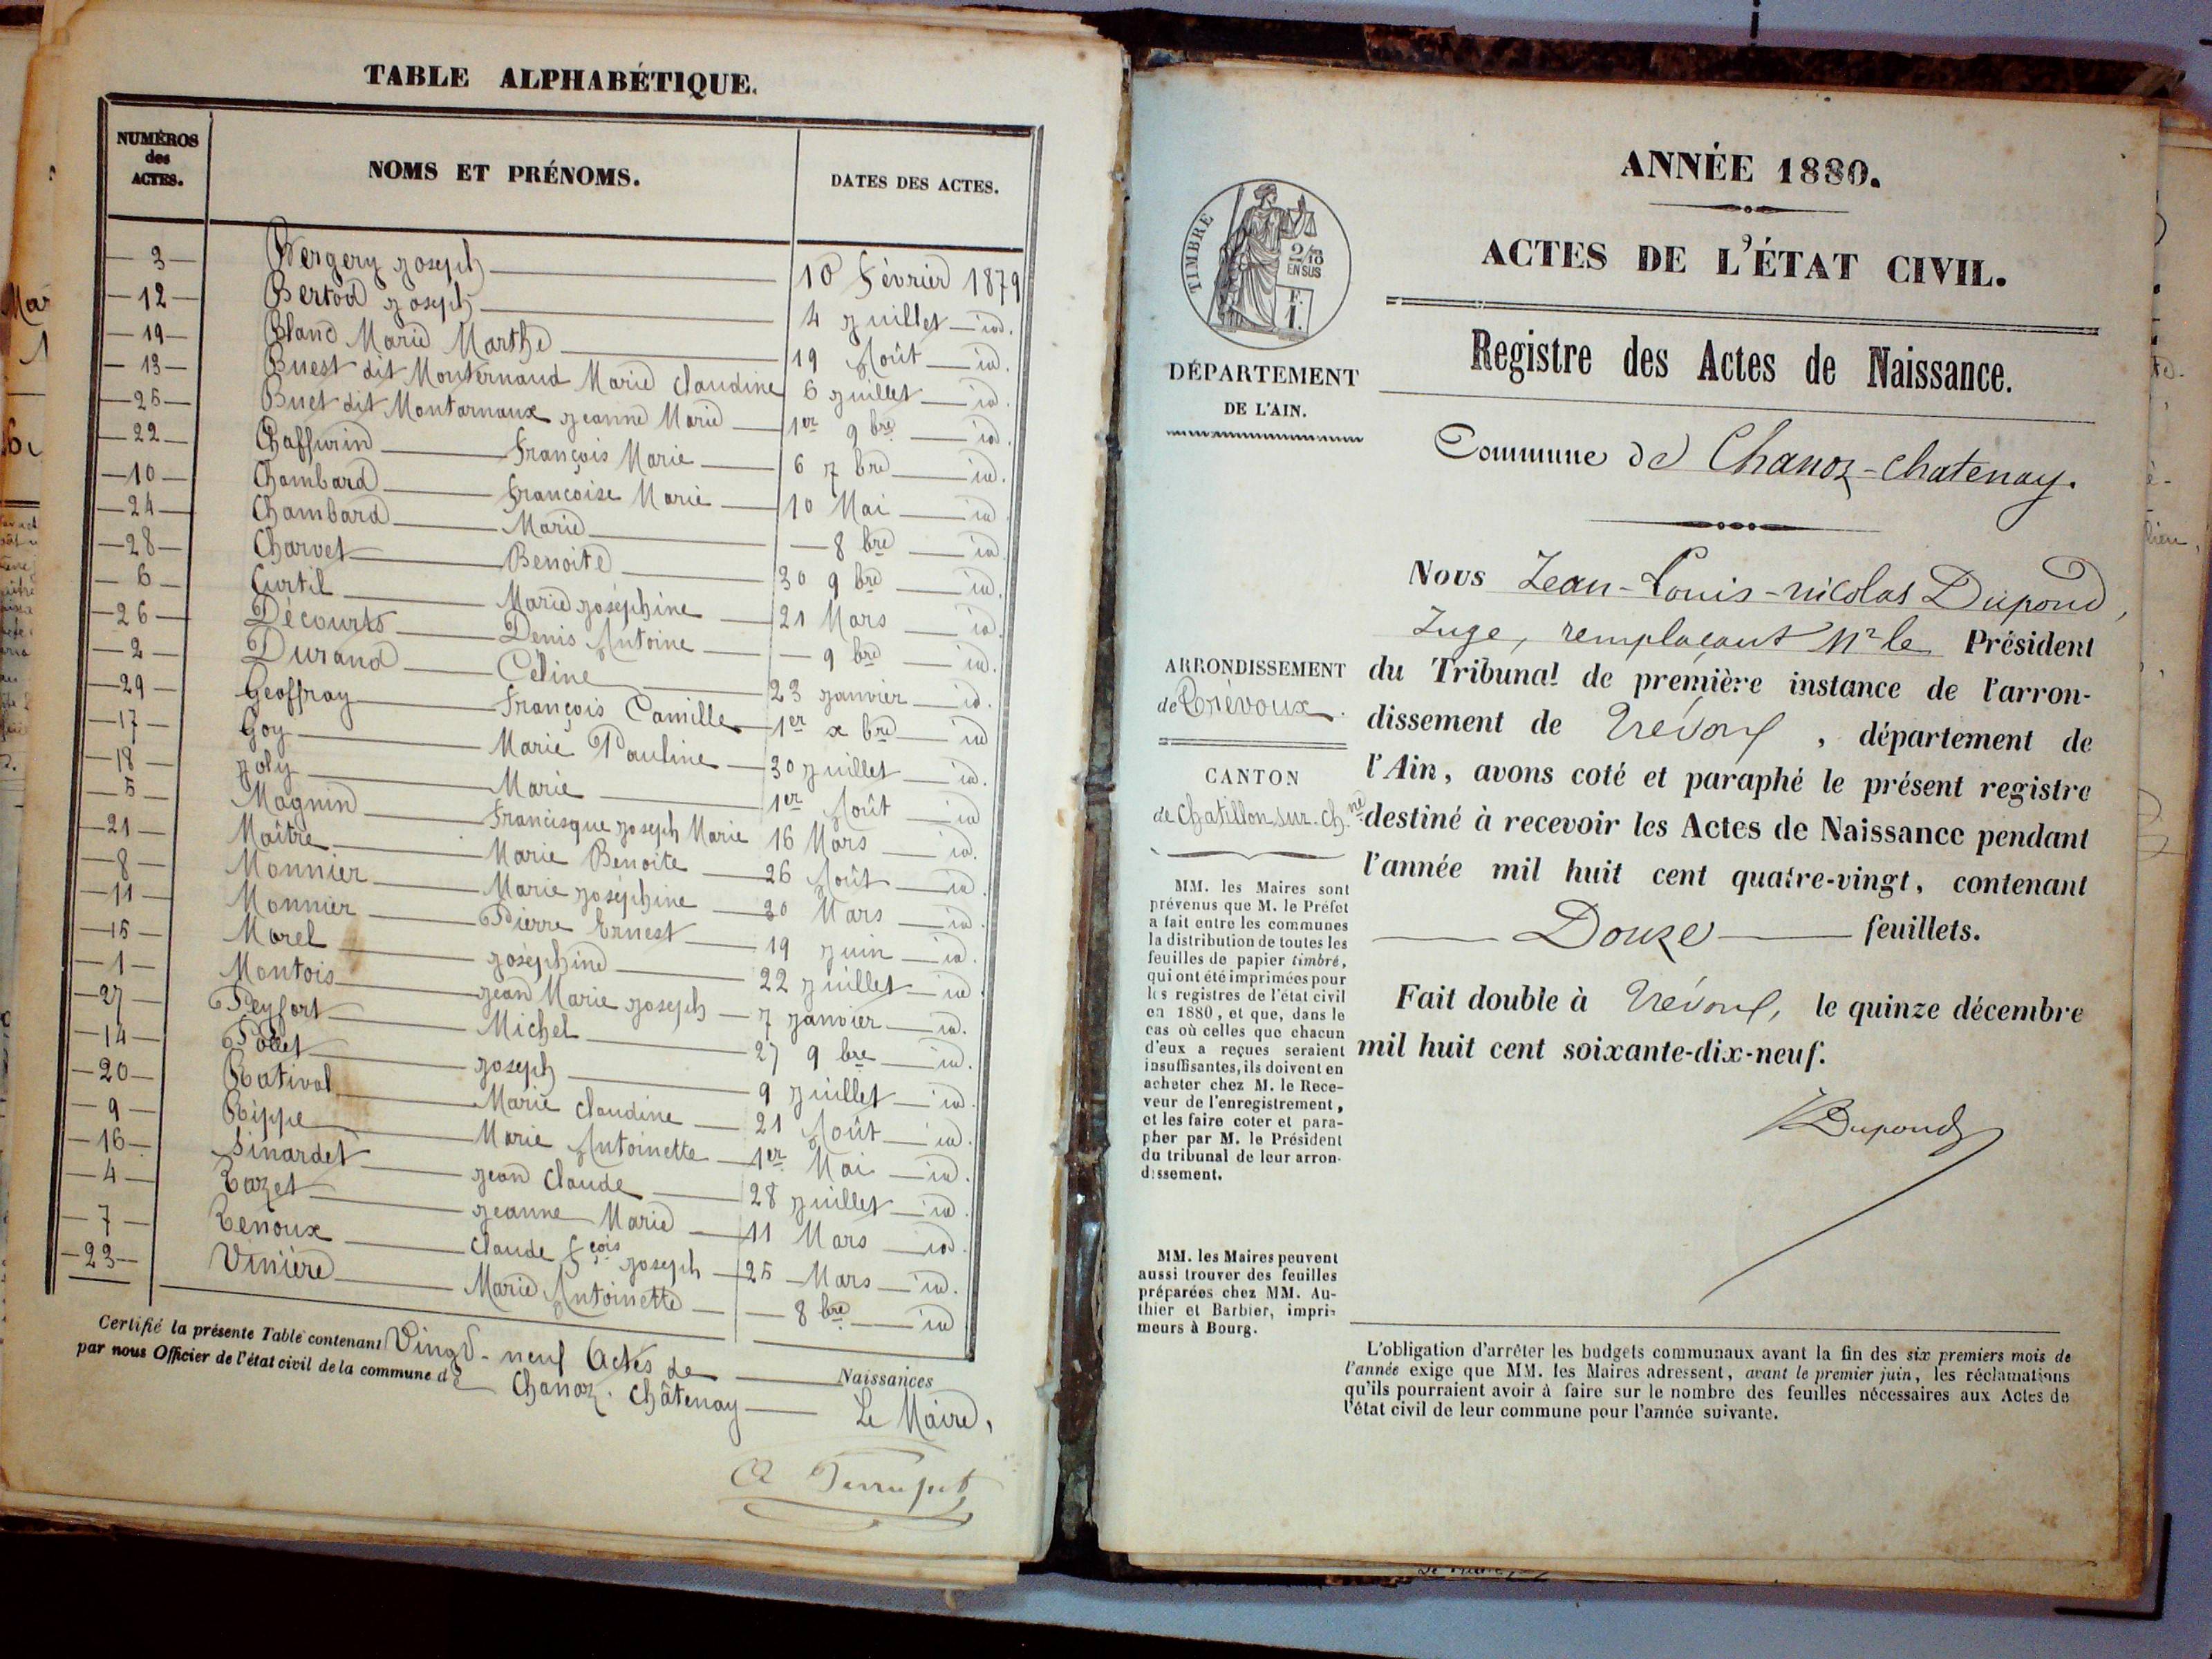 TABLE ALPHABÉTIQUE.
NUMÉROS
des
ACTES.
NOMS ET PRÉNOMS.
DATES DES ACTES.
— 3 — Bergery Joseph — 10 Février 1879
— 12 — Bertod Joseph — 4 Juillet — id.
— 19 — Blanc Marie Marthe — 19 Août — id.
— 13 — Buest dit Monternaud Marie Claudine 6 Juillet — id.
— 25 — Buet dit Montarnaux Jeanne Marie — 1er 9bre — id.
— 22 — Chaffurin — François Marie — 6 7bre — id.
— 10 — Chambard — Françoise Marie — 10 Mai — id.
— 24 — Chambard — Marie — 8bre — id.
— 28 — Charvet — Benoite — 30 9bre — id.
— 6 — Curtil — Marie Joséphine — 21 Mars — id.
— 26 — Décourts — Denis Antoine — 9bre — id.
— 2 — Durand — Céline — 23 Janvier — id.
— 29 — Geoffray — François Camille — 1er xbre — id
— 17 — Goy — Marie Pauline — 30 Juillet — id.
— 18 — Joly — Marie — 1er Août — id
— 5 — Magnin — Francisque Joseph Marie 16 Mars — id.
— 21 — Maître — Marie Benoite — 26 Août — id.
— 8 — Monnier — Marie Joséphine — 30 Mars — id.
— 11 — Monnier — Pierre Ernest — 19 Juin — id.
— 15 — Morel — Joséphine — 22 Juillet — id.
— 1 — Montois — Jean Marie Joseph — 7 Janvier — id.
— 27 — Peyfort — Michel — 27 9bre — id.
— 14 — Pollet — Joseph — 9 Juillet — id.
— 20 — Rativol — Marie Claudine — 21 Août — id.
— 9 — Rippe — Marie Antoinette — 1er Mai — id.
— 16 — Sinardet — Jean Claude — 28 Juillet — id.
— 4 — Tazet — Jeanne Marie — 11 Mars — id.
— 7 — Tenoux — Claude Fçois Joseph — 25 Mars — id.
— 23 — Vinière — Marie Antoinette — 8bre — id
Certifié la présente Table contenant Vingt-neuf Actes de — Naissances
par nous Officier de l'état civil de la commune de Chanoz-Châtenay —
Le Maire,
ANNÉE 1880.
ACTES DE L'ÉTAT CIVIL.
Registre des Actes de Naissance.
TIMBRE
2/10
EN SUS
F.
1.
DÉPARTEMENT
DE L'AIN.
Commune de Chanoz-Chatenay.
Nous Jean-Louis-Nicolas Dupond,
Juge, remplaçant Mr le Président
du Tribunal de première instance de l'arron-
dissement de Trévoux, département de
l'Ain, avons coté et paraphé le présent registre
destiné à recevoir les Actes de Naissance pendant
l'année mil huit cent quatre-vingt, contenant
— Douze — feuillets.
Fait double à Trévoux, le quinze décembre
mil huit cent soixante-dix-neuf.
Dupond
ARRONDISSEMENT
de Trévoux.
CANTON
de Chatillon sur Ch.ne
MM. les Maires sont
prévenus que M. le Préfet
a fait entre les communes
la distribution de toutes les
feuilles de papier timbré,
qui ont été imprimées pour
les registres de l'état civil
en 1880, et que, dans le
cas où celles que chacun
d'eux a reçues seraient
insuffisantes, ils doivent en
acheter chez M. le Rece-
veur de l'enregistrement,
et les faire coter et para-
pher par M. le Président
du tribunal de leur arron-
dissement.
MM. les Maires peuvent
aussi trouver des feuilles
préparées chez MM. Au-
thier et Barbier, impri-
meurs à Bourg.
L'obligation d'arrêter les budgets communaux avant la fin des six premiers mois de
l'année exige que MM. les Maires adressent, avant le premier juin, les réclamations
qu'ils pourraient avoir à faire sur le nombre des feuilles nécessaires aux Actes de
l'état civil de leur commune pour l'année suivante.